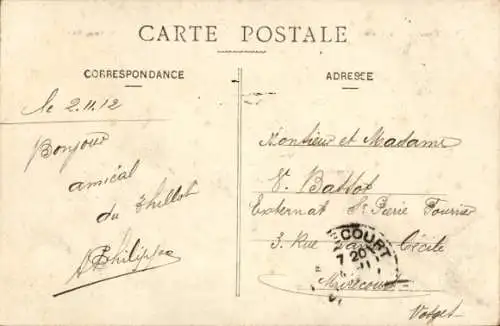 CARTE POSTALE
CORRESPONDANCE
le 2.11.12
Bonjour
amical
du Thillot
Philippe
ADRESSE
Monsieur et Madame
V. Battot
Externat St Pierre Fourrier
3. Rue Cécile
Mirecourt
Vosges
COURT
7 20